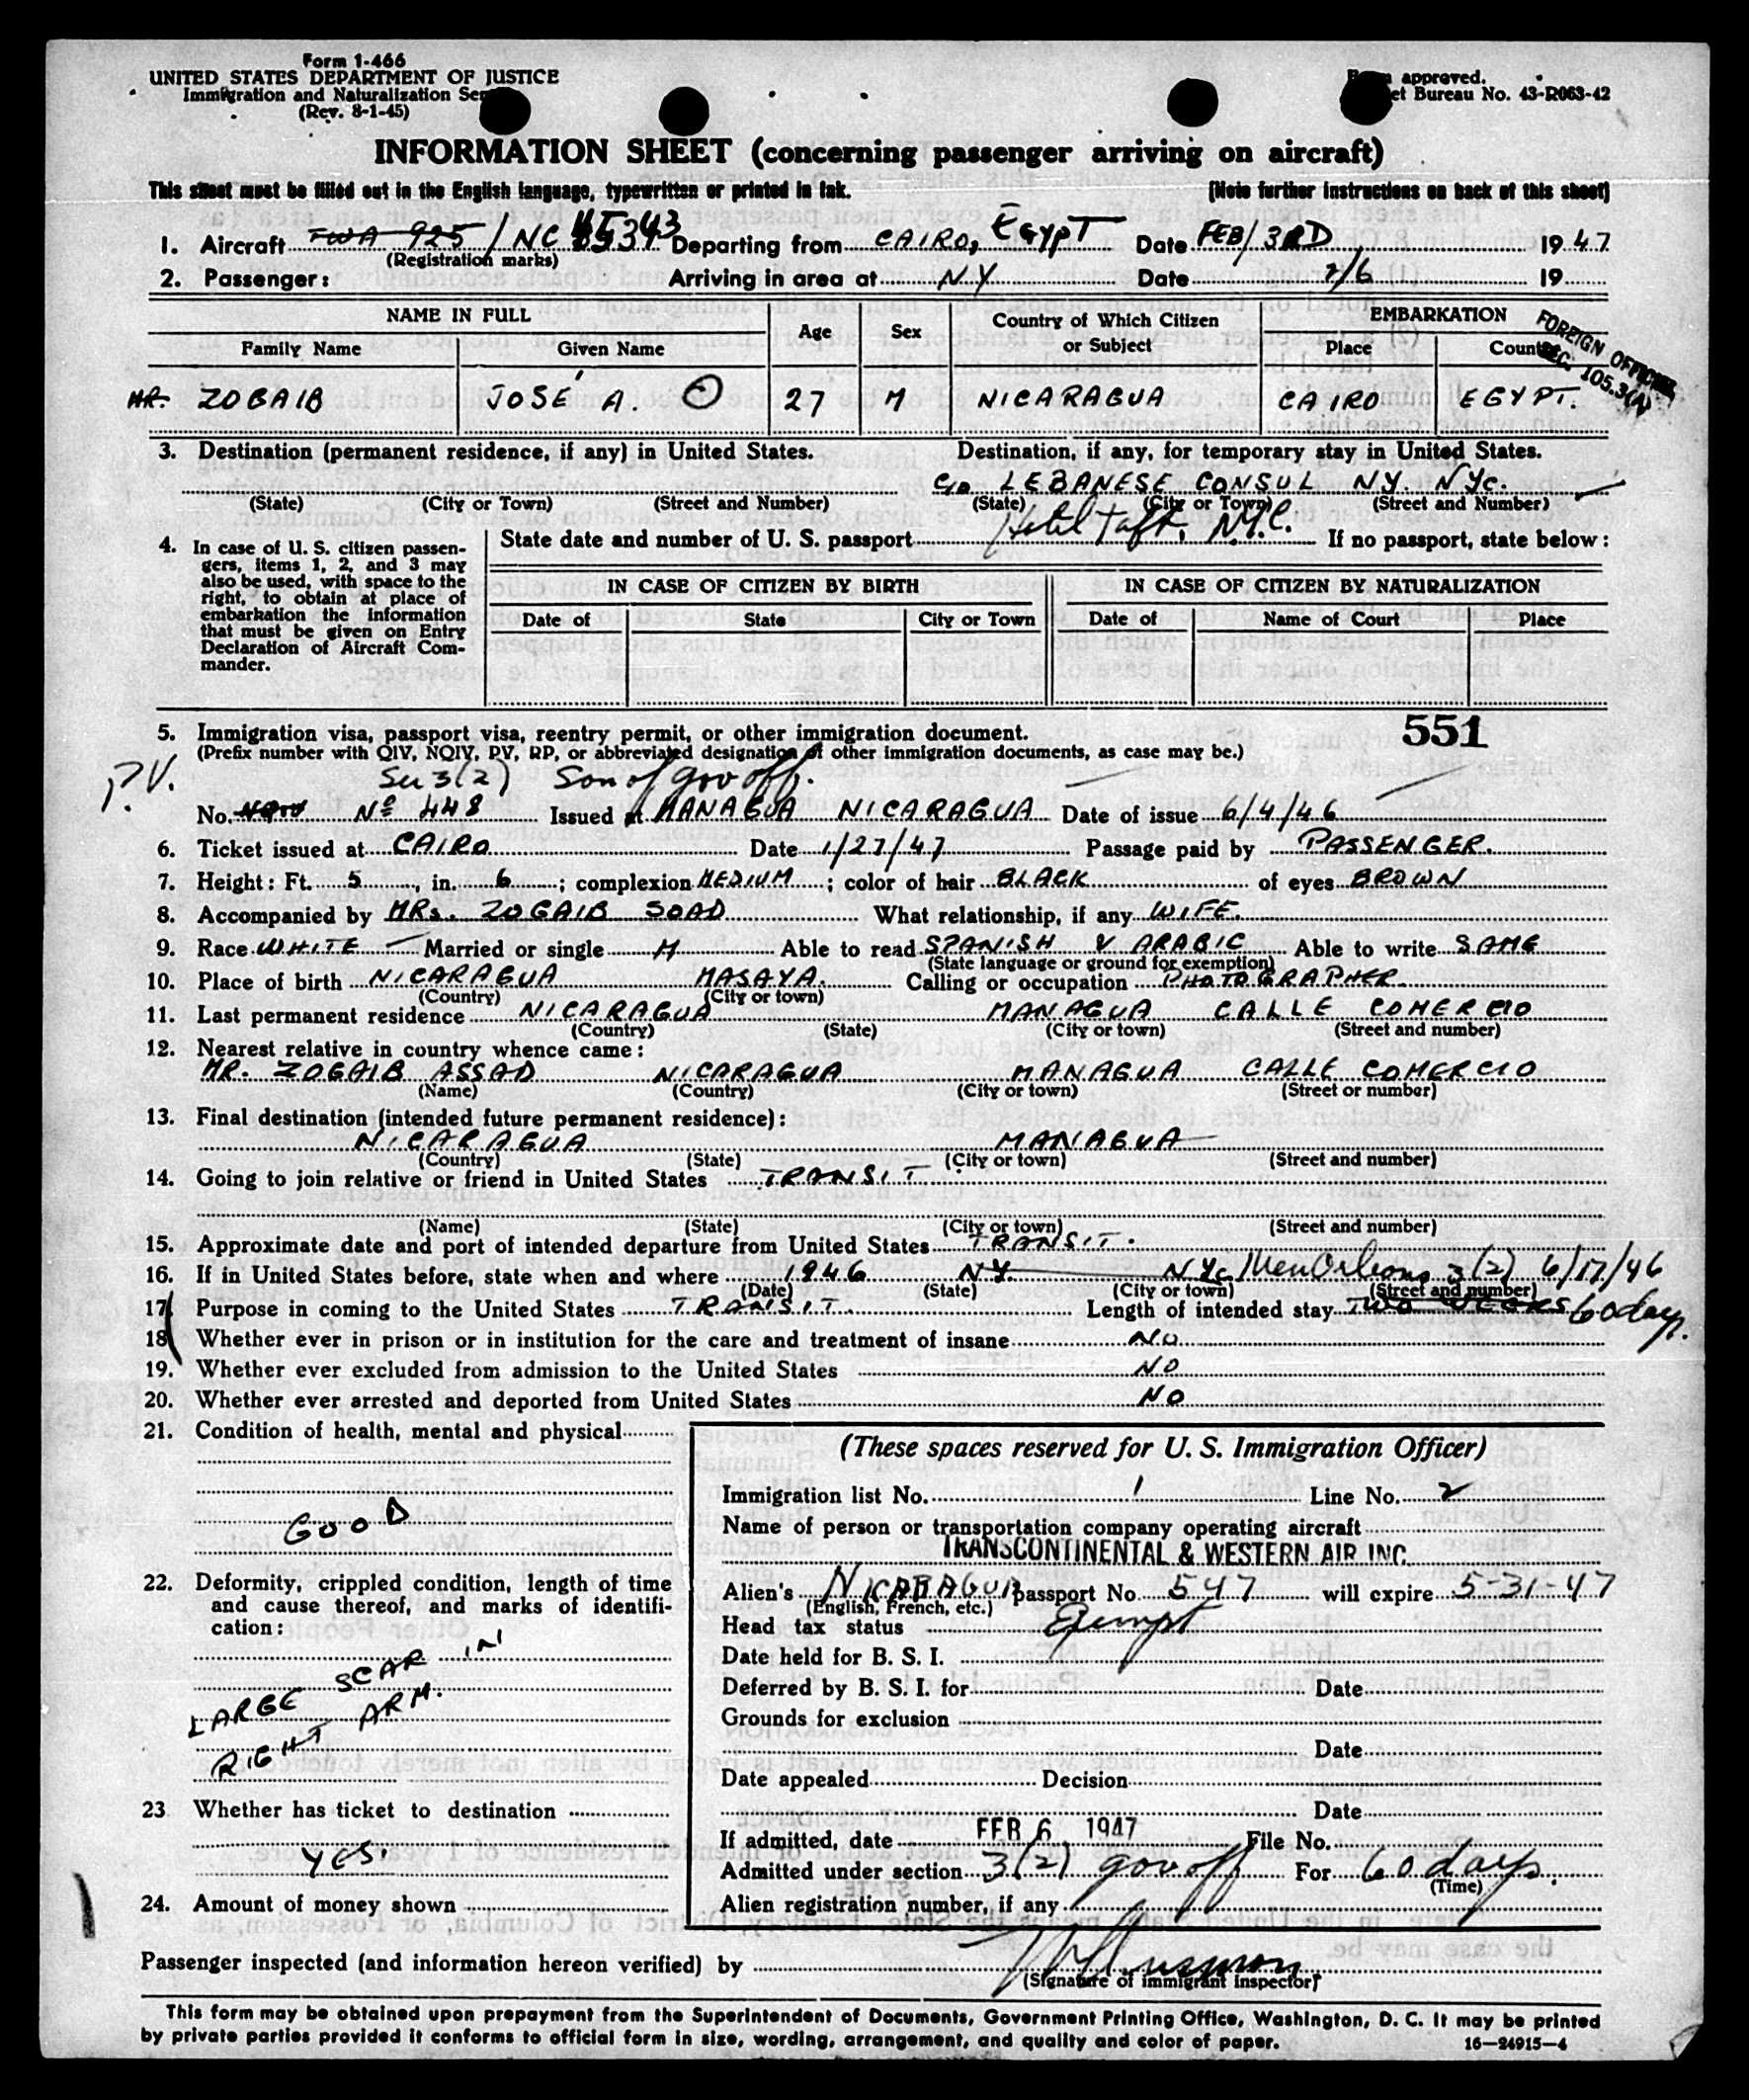 Form 1-466
UNITED STATES DEPARTMENT OF JUSTICE
Immigration and Naturalization
(Rev. 8-1-45)
approved.
et Bureau No. 43-R063-42
INFORMATION SHEET (concerning passenger arriving on aircraft)
This sheet must be filled out in the English language, typewritten or printed in ink. (Note further instructions on back of this sheet)
1. Aircraft TWA 925 / NC Departing from CAIRO, Egypt Date FEB/3RD 1947
(Registration marks)
2. Passenger: Arriving in area at NY Date 2/6 19
NAME IN FULL Age Sex Country of Which Citizen or Subject EMBARKATION
Family Name Given Name Place Country
FOREIGN OFFICER
SEC. 105.3(A)
MR. ZOGAIB JOSÉ A. 27 M NICARAGUA CAIRO EGYPT.
3. Destination (permanent residence, if any) in United States. Destination, if any, for temporary stay in United States.
C/o LEBANESE CONSUL NY. NYC.
(State) (City or Town) (Street and Number) (State) (City or Town) (Street and Number)
Hotel Taft, N.Y.C.
4. In case of U. S. citizen passen-
gers, items 1, 2, and 3 may
also be used, with space to the
right, to obtain at place of
embarkation the information
that must be given on Entry
Declaration of Aircraft Com-
mander.
State date and number of U. S. passport If no passport, state below:
IN CASE OF CITIZEN BY BIRTH IN CASE OF CITIZEN BY NATURALIZATION
Date of State City or Town Date of Name of Court Place
551
5. Immigration visa, passport visa, reentry permit, or other immigration document.
(Prefix number with QIV, NQIV, PV, RP, or abbreviated designation of other immigration documents, as case may be.)
P.V. Sec 3(2) Son of gov off.
No. Nº 448 Issued at MANAGUA NICARAGUA Date of issue 6/4/46
6. Ticket issued at CAIRO Date 1/27/47 Passage paid by PASSENGER.
7. Height: Ft. 5, in. 6; complexion MEDIUM; color of hair BLACK of eyes BROWN
8. Accompanied by MRs. ZOGAIB SOAD What relationship, if any WIFE.
9. Race WHITE Married or single M Able to read SPANISH & ARABIC Able to write SAME
(State language or ground for exemption)
10. Place of birth NICARAGUA MASAYA. Calling or occupation PHOTOGRAPHER
(Country) (City or town)
11. Last permanent residence NICARAGUA MANAGUA CALLE COMERCIO
(Country) (State) (City or town) (Street and number)
12. Nearest relative in country whence came:
MR. ZOGAIB ASSAD NICARAGUA MANAGUA CALLE COMERCIO
(Name) (Country) (City or town) (Street or number)
13. Final destination (intended future permanent residence):
NICARAGUA MANAGUA
(Country) (State) (City or town) (Street and number)
14. Going to join relative or friend in United States TRANSIT
(Name) (State) (City or town) (Street and number)
15. Approximate date and port of intended departure from United States TRANSIT.
16. If in United States before, state when and where 1946 NY. NYC New Orleans 3(2) 6/17/46
(Date) (State) (City or town) (Street and number)
17. Purpose in coming to the United States TRANSIT. Length of intended stay TWO WEEKS 60 days.
18. Whether ever in prison or in institution for the care and treatment of insane NO
19. Whether ever excluded from admission to the United States NO
20. Whether ever arrested and deported from United States NO
21. Condition of health, mental and physical
GOOD
22. Deformity, crippled condition, length of time
and cause thereof, and marks of identifi-
cation:
LARGE SCAR IN
RIGHT ARM.
23 Whether has ticket to destination
YES.
24. Amount of money shown
(These spaces reserved for U. S. Immigration Officer)
Immigration list No. 1 Line No. 2
Name of person or transportation company operating aircraft
TRANSCONTINENTAL & WESTERN AIR INC.
Alien's NICARAGUA passport No. 547 will expire 5-31-47
(English, French, etc.)
Head tax status Exempt
Date held for B. S. I.
Deferred by B. S. I. for Date
Grounds for exclusion
Date
Date appealed Decision
Date
If admitted, date FEB 6 1947 File No.
Admitted under section 3(2) gov off For 60 days.
(Time)
Alien registration number, if any
Passenger inspected (and information hereon verified) by
(Signature of immigrant inspector)
This form may be obtained upon prepayment from the Superintendent of Documents, Government Printing Office, Washington, D. C. It may be printed
by private parties provided it conforms to official form in size, wording, arrangement, and quality and color of paper. 16—24915-4